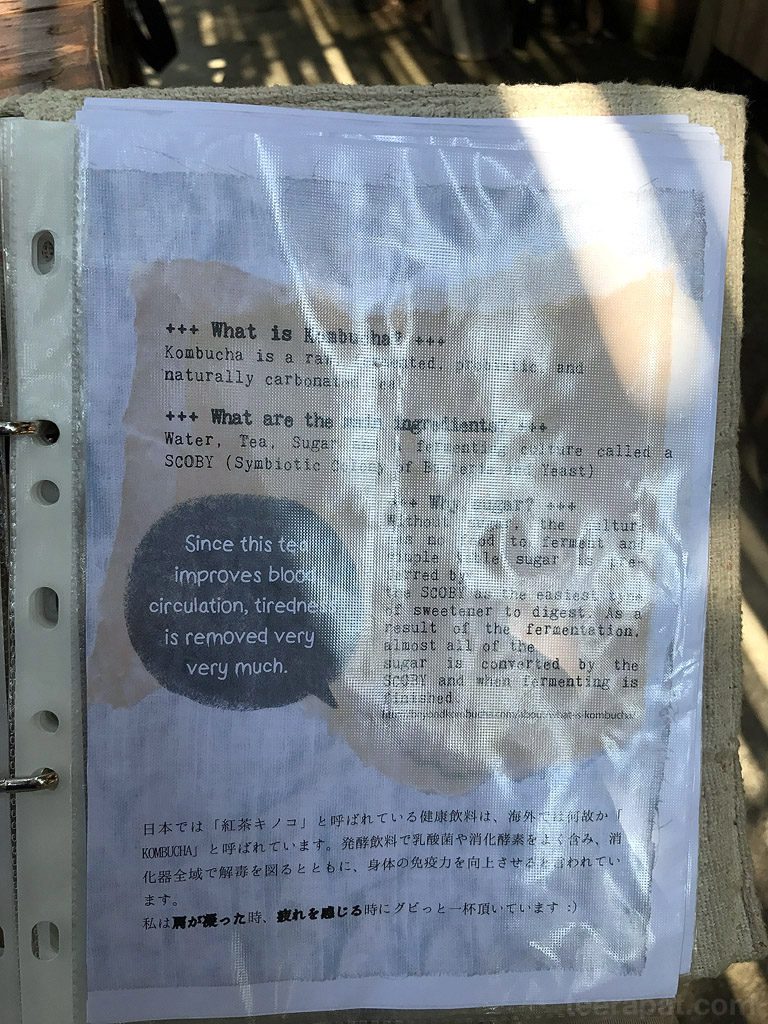 +++ What is Kombucha? +++
Kombucha is a raw, fermented, probiotic, and
naturally carbonated tea
+++ What are the main ingredients? +++
Water, Tea, Sugar and a fermenting culture called a
SCOBY (Symbiotic Colony of Bacteria and Yeast)
+++ Why sugar? +++
Without sugar, the culture
has no food to ferment and
simple table sugar is pre-
ferred by
the SCOBY as the easiest type
of sweetener to digest. As a
result of the fermentation,
almost all of the
sugar is converted by the
SCOBY and when fermenting is
finished.
http://beyondkombucha.com/about/what-is-kombucha/
Since this tea
improves blood
circulation, tiredness
is removed very
very much.
日本では「紅茶キノコ」と呼ばれている健康飲料は、海外では何故か「
KOMBUCHA」と呼ばれています。発酵飲料で乳酸菌や消化酵素をよく含み、消
化器全域で解毒を図るとともに、身体の免疫力を向上させると言われてい
ます。
私は肩が凝った時、疲れを感じる時にグビっと一杯頂いています :)
teerapat.com